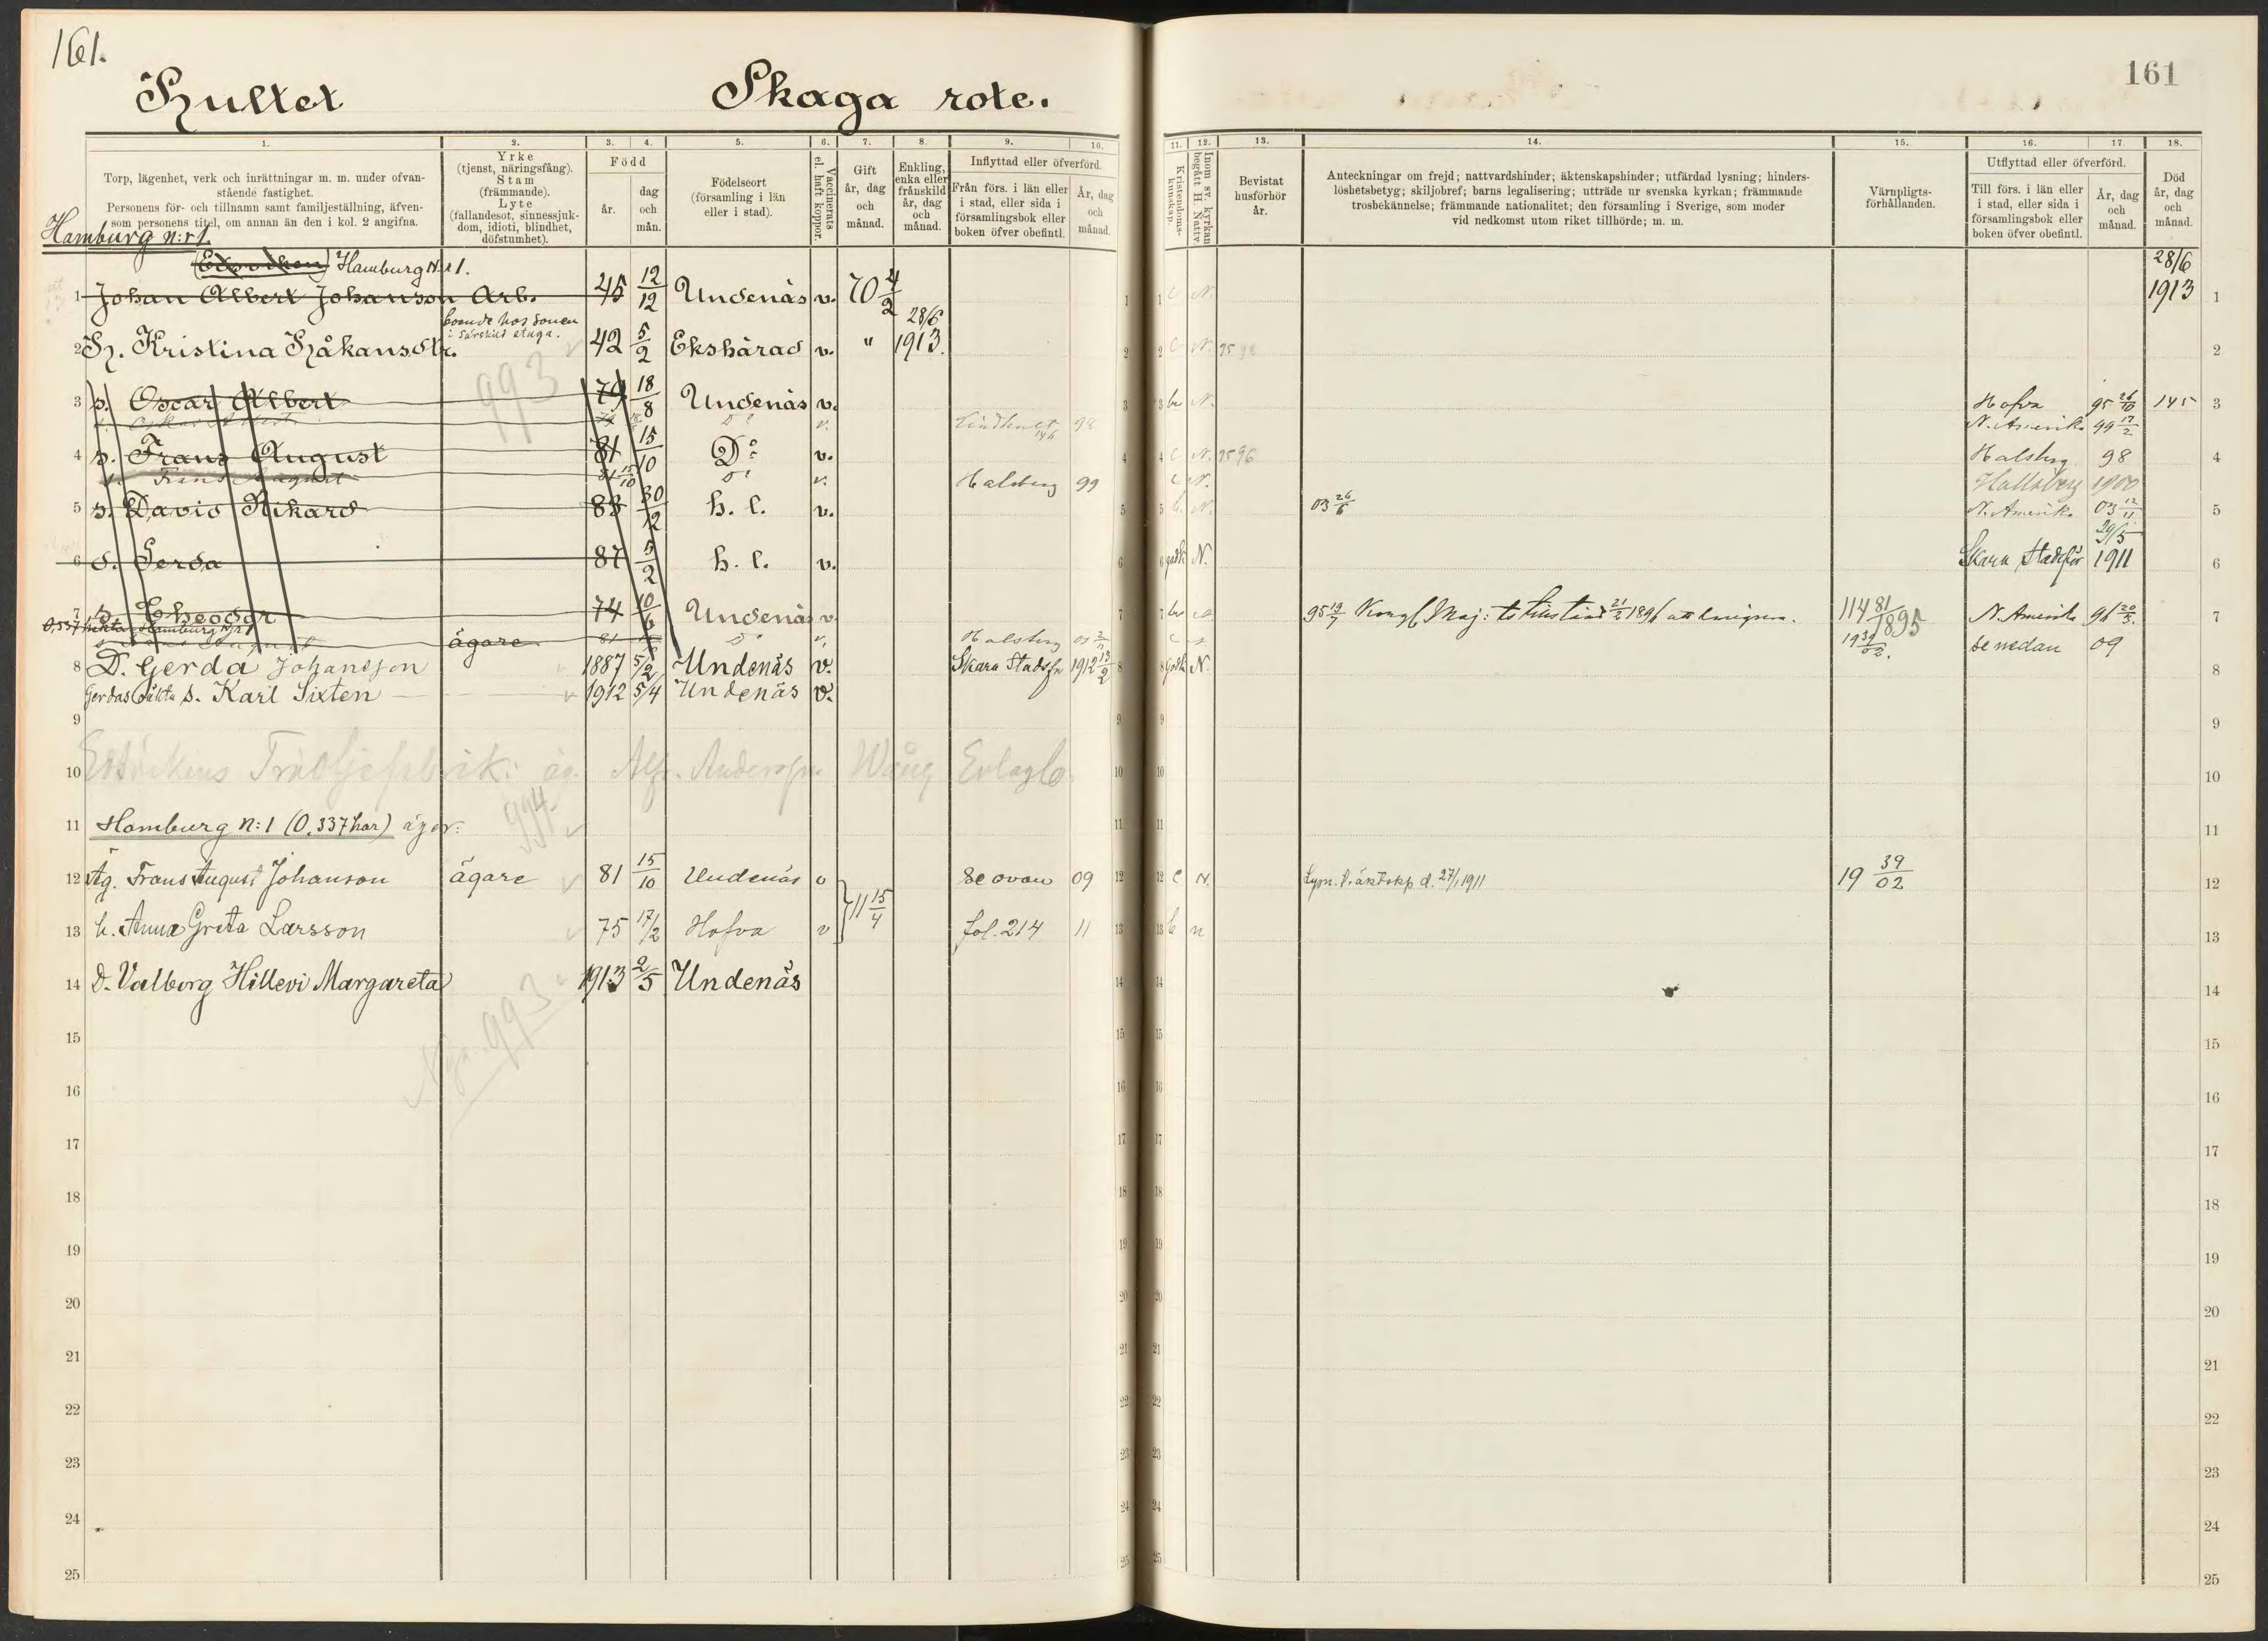 161.
161
Hultet Skaga rote.
1. 2. 3. 4. 5. 6. 7. 8. 9. 10. 11. 12. 13. 14. 15. 16. 17. 18.
Torp, lägenhet, verk och inrättningar m. m. under ofvanstående fastighet.
Personens för- och tillnamn samt familjeställning, äfvensom personens titel, om annan än den i kol. 2 angifna.
Yrke (tjenst, näringsfång). Stam (främmande). Lyte (fallandesot, sinnessjukdom, idioti, blindhet, döfstumhet).
Född år. dag och mån.
Födelseort (församling i län eller i stad).
Vaccinerats el. haft koppor.
Gift år, dag och månad.
Enkling, enka eller frånskild år, dag och månad.
Inflyttad eller öfverförd.
Från förs. i län eller i stad, eller sida i församlingsbok eller boken öfver obefintl.
År, dag och månad.
Kristendomskunskap.
Inom sv. kyrkan begått H. Nattv.
Bevistat husförhör år.
Anteckningar om frejd; nattvardshinder; äktenskapshinder; utfärdad lysning; hinderslöshetsbetyg; skiljobref; barns legalisering; utträde ur svenska kyrkan; främmande trosbekännelse; främmande nationalitet; den församling i Sverige, som moder vid nedkomst utom riket tillhörde; m. m.
Värnpligtsförhållanden.
Utflyttad eller öfverförd.
Till förs. i län eller i stad, eller sida i församlingsbok eller boken öfver obefintl.
År, dag och månad.
Död år, dag och månad.
Hamburg n:r 1.
Hamburg N:r 1.
1 Johan Albert Johanson Arb. 45 12/12 Undenäs v. 70 4/2 C N. 28/6 1913 1
boende hos sonen i särskild stuga.
2 H. Kristina Håkansdtr. 42 5/2 Ekshärad v. " 28/6 1913. C N. 95 98 2
993
3 s. Oscar Albert 79 18/8 Undenäs v. N. Hofva 95 26/10 145 3
Oskar Albert v. Lindhult 146 98 N. Amerika 99 17/2
4 s. Frans August 81 15/10 Do v. C N. 95 96 Halsberg 98 4
s. Frans August 81 15/10 Do v. Halsberg 99 C N. Hallsberg 1900
5 s. David Rikard 83 30/12 h. l. v. N. 03 26/6 N. Amerika 03 12/11 5
6 d. Gerda 87 5/2 h. l. v. godk N. Skara Stadsför 29/5 1911 6
7 s. Theodor 74 10/6 Undenäs v. 95 19/7 Kongl. Maj:ts 21/2 1896 1148 81/1895 N. Amerika 96 20/3. 7
0,337 hektar Hamburg N:r 1
ägare 81 Do v. Halsberg C 19 39/02. se nedan 09
8 D. Gerda Johansson 1887 5/2 Undenäs v. Skara Stadsfs 1912 13/2 godk N. 8
Gerdas oäkta s. Karl Sixten 1912 5/4 Undenäs v.
9 9
10 Edsvikens Träoljefabrik: äg. Alfr. Andersson Wång 10
994
11 Hamburg n:1 (0,337 har) äger: 11
12 Äg. Frans August Johanson ägare 81 15/10 Undenäs v 11 15/4 Se ovan 09 C N. Lysn. t. äktskp d. 27/1 1911 19 39/02 12
13 h. Anna Greta Larsson 75 17/2 Hofva v fol. 214 11 n 13
14 D. Valborg Hillevi Margareta 1913 2/5 Undenäs 14
993
15 15
16 16
17 17
18 18
19 19
20 20
21 21
22 22
23 23
24 24
25 25